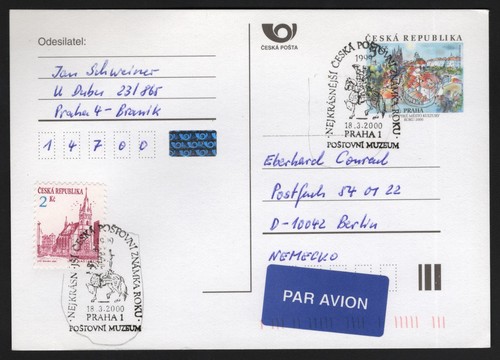 Odesilatel:
Jan Schweiner
U Dubu 23/865
Praha 4 - Braník
14700
ČESKÁ POŠTA
ČESKÁ REPUBLIKA
PRAHA
NEJKRÁSNĚJŠÍ ČESKÁ POŠTOVNÍ ZNÁMKA ROKU
1999
18.3.2000
PRAHA 1
POŠTOVNÍ MUZEUM
Eberhard Conrad
Postfach 54 01 22
D-10042 Berlin
NEMECKO
PAR AVION
ČESKÁ REPUBLIKA
2 Kč
NEJKRÁSNĚJŠÍ ČESKÁ POŠTOVNÍ ZNÁMKA ROKU
18.3.2000
PRAHA 1
POŠTOVNÍ MUZEUM